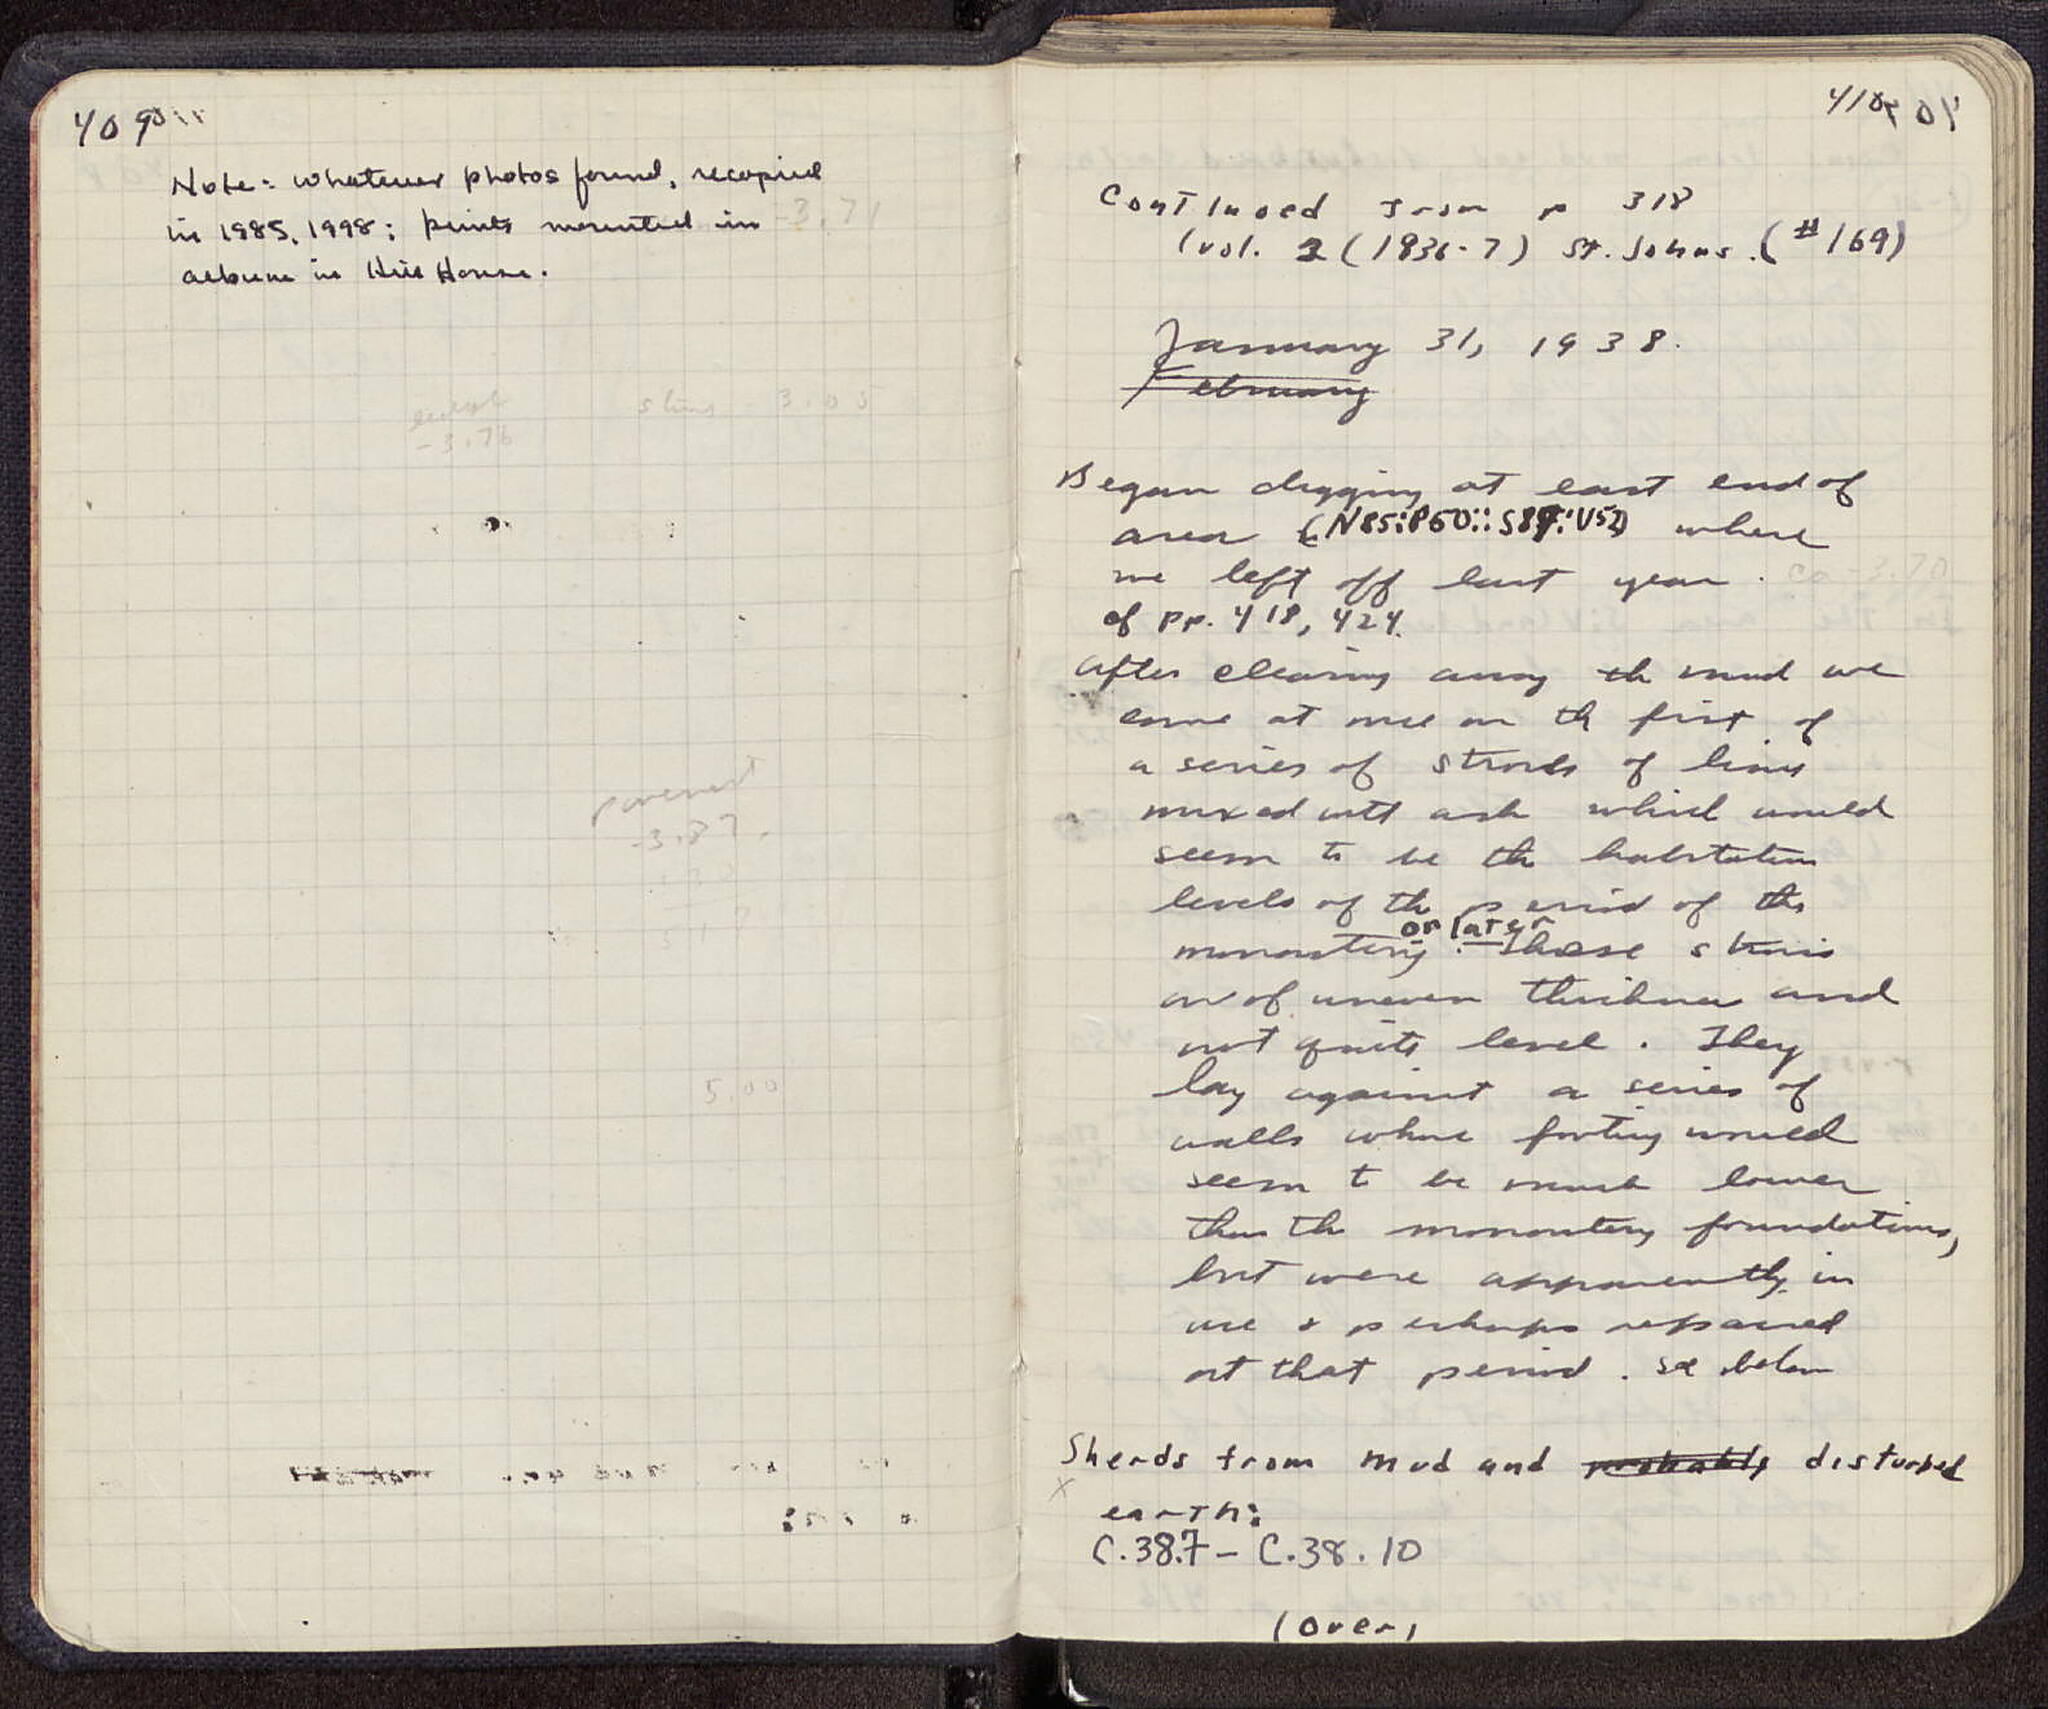 409
Note: Whatever photos found, recopied
in 1985, 1998; prints mounted in
album in Hill House.
-3.71
-3.76
-3.05
pavement
-3.87
5.00
410
Continued from p 318
(vol. 2 (1936-7) St. Johns. (#169)
January 31, 1938.
February
Began digging at east end of
area (N85:P60::S87:U52) where
we left off last year.
cf pp. 418, 424.
After clearing away th mud we
come at once on th first of
a series of strows of lime
mixed with ash which would
seem to be th habitation
levels of th period of the
monastery or later. These strows
are of uneven thickness and
not quite level. They
lay against a series of
walls whose footing would
seem to be much lower
than th monastery foundations,
but were apparently in
use & perhaps repaired
at that period. See below
Sherds from mud and probably disturbed
x
earth:
C.38.7 - C.38.10
(over)